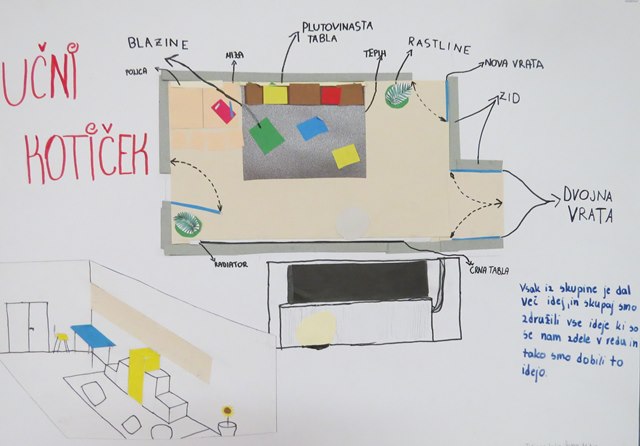 UČNI
KOTIČEK
BLAZINE
POLICA
MIZA
PLUTOVINASTA
TABLA
TEPIH
RASTLINE
NOVA VRATA
ZID
DVOJNA
VRATA
RADIATOR
ČRNA TABLA
Vsak iz skupine je dal
več idej, in skupaj smo
združili vse ideje ki so
se nam zdele v redu in
tako smo dobili to
idejo.